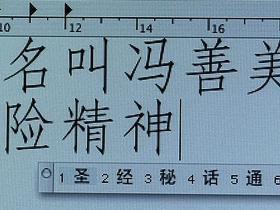 10 12 14 16
名叫冯善美
险精神
1 圣 2 经 3 秘 4 话 5 通 6